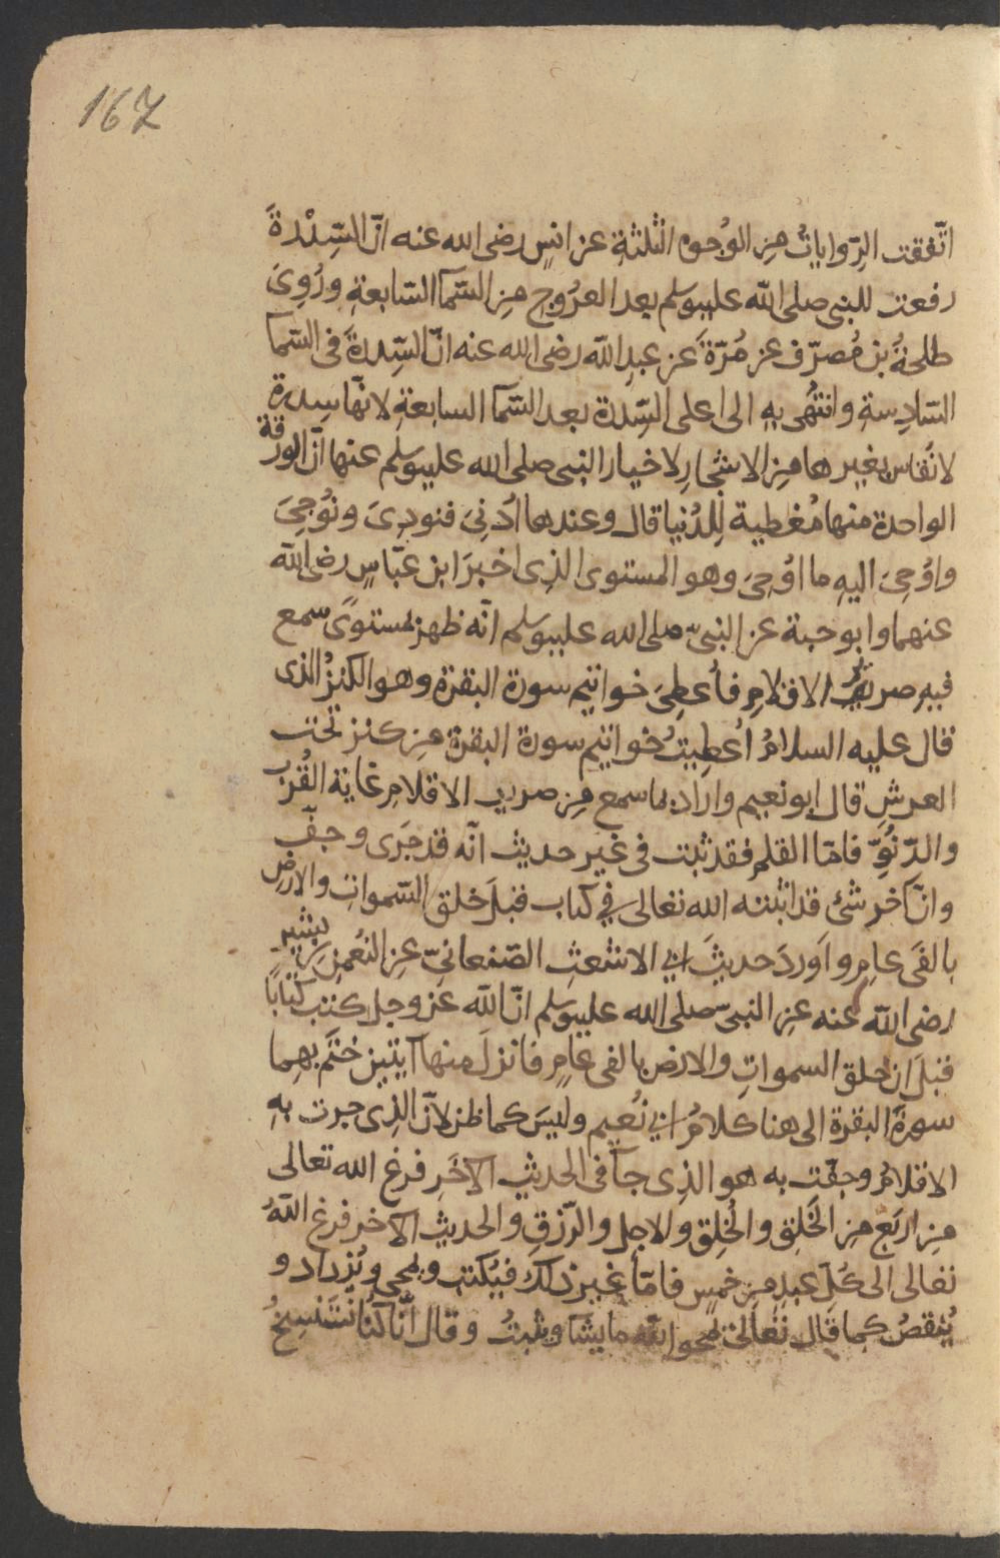 167
اتّفقت الرّوايات من الوُجوه الثلثةِ عن انسٍ رضى الله عنه انّ السِّدْرةَ
رفعت للنبى صلى الله عليه وسلم بعد العرُوج من السّما السّابعةِ ورُوِىَ
طلحةُ بن مُصرّف عن مُرّةَ عن عبدِ الله رضى الله عنه انّ السِّدرةَ فى السّما
السّادِسةِ وانتُهى بهِ الى اعلى السِّدرة بعد السّما السابعةِ لانّها سِدرة
لا تُقاس بغيرها من الاشجارِ لاخبار النبى صلى الله عليه وسلم عنها انّ الورقة
الواحدة منها مُغطية لِلدُنيا قال وعندها اُدْنِىَ فنودِىَ ونُوجِىَ
واوُحِىَ اليهِ ما اوُحِىَ وهو المستوى الذِى اخبرَ ابن عبّاسٍ رضى الله
عنهما وابو حبة عن النبىّ صلى الله عليه وسلم انّه ظهر لمستوًى سمع
فيهِ صريفُ الاقلامِ فأُعطِىَ خواتيم سورة البقرة وهو الكنزُ الذى
قال عليه السلامُ اُعطِيتُ خواتيم سورة البقرة من كنز تحت
العرشِ قال ابو نعيم واراد بما سمع من صريف الاقلامِ غاية القُرب
والدّنُوِّ فامّا القلم فقد ثبت فى غير حديث انّه قد جَرى وجفّ
وانّ آخر شئ قد اثبته الله تعالى فى كتاب قبلَ خلق السّمواتِ والارض
بالفَى عامٍ واَوردَ حديثَ ابى الاشعثِ الصّنعانىّ عن النّعمن بن بشير
رضى الله عنه عن النبىّ صلى الله عليه وسلم انّ الله عزّ وجل كتب كتابًا
قبلَ ان خلق السمواتِ والارض بالفى عامٍ فانزلَ منها آيتين ختَم بهما
سورةَ البقرة الى هنا كلامُ ابى نُعيم وليسَ كما ظن لانّ الذِى جرت بهِ
الاقلامُ وجفّت به هو الذِى جآ فى الحديثِ الآخَرِ فرغ الله تعالى
من اربَع من الخَلق والخُلق والاجل والرّزقِ والحديث الآخر فرغ اللهُ
تعالى الى كُلّ عبدٍ من خمسٍ فامّا غير ذلك فيُكتب ويمحى ويُزداد و
يُنقصُ كما قال تعالى يمحو الله ما يشا ويثبتُ وقال انّا كُنّا نَسْتنسِخُ